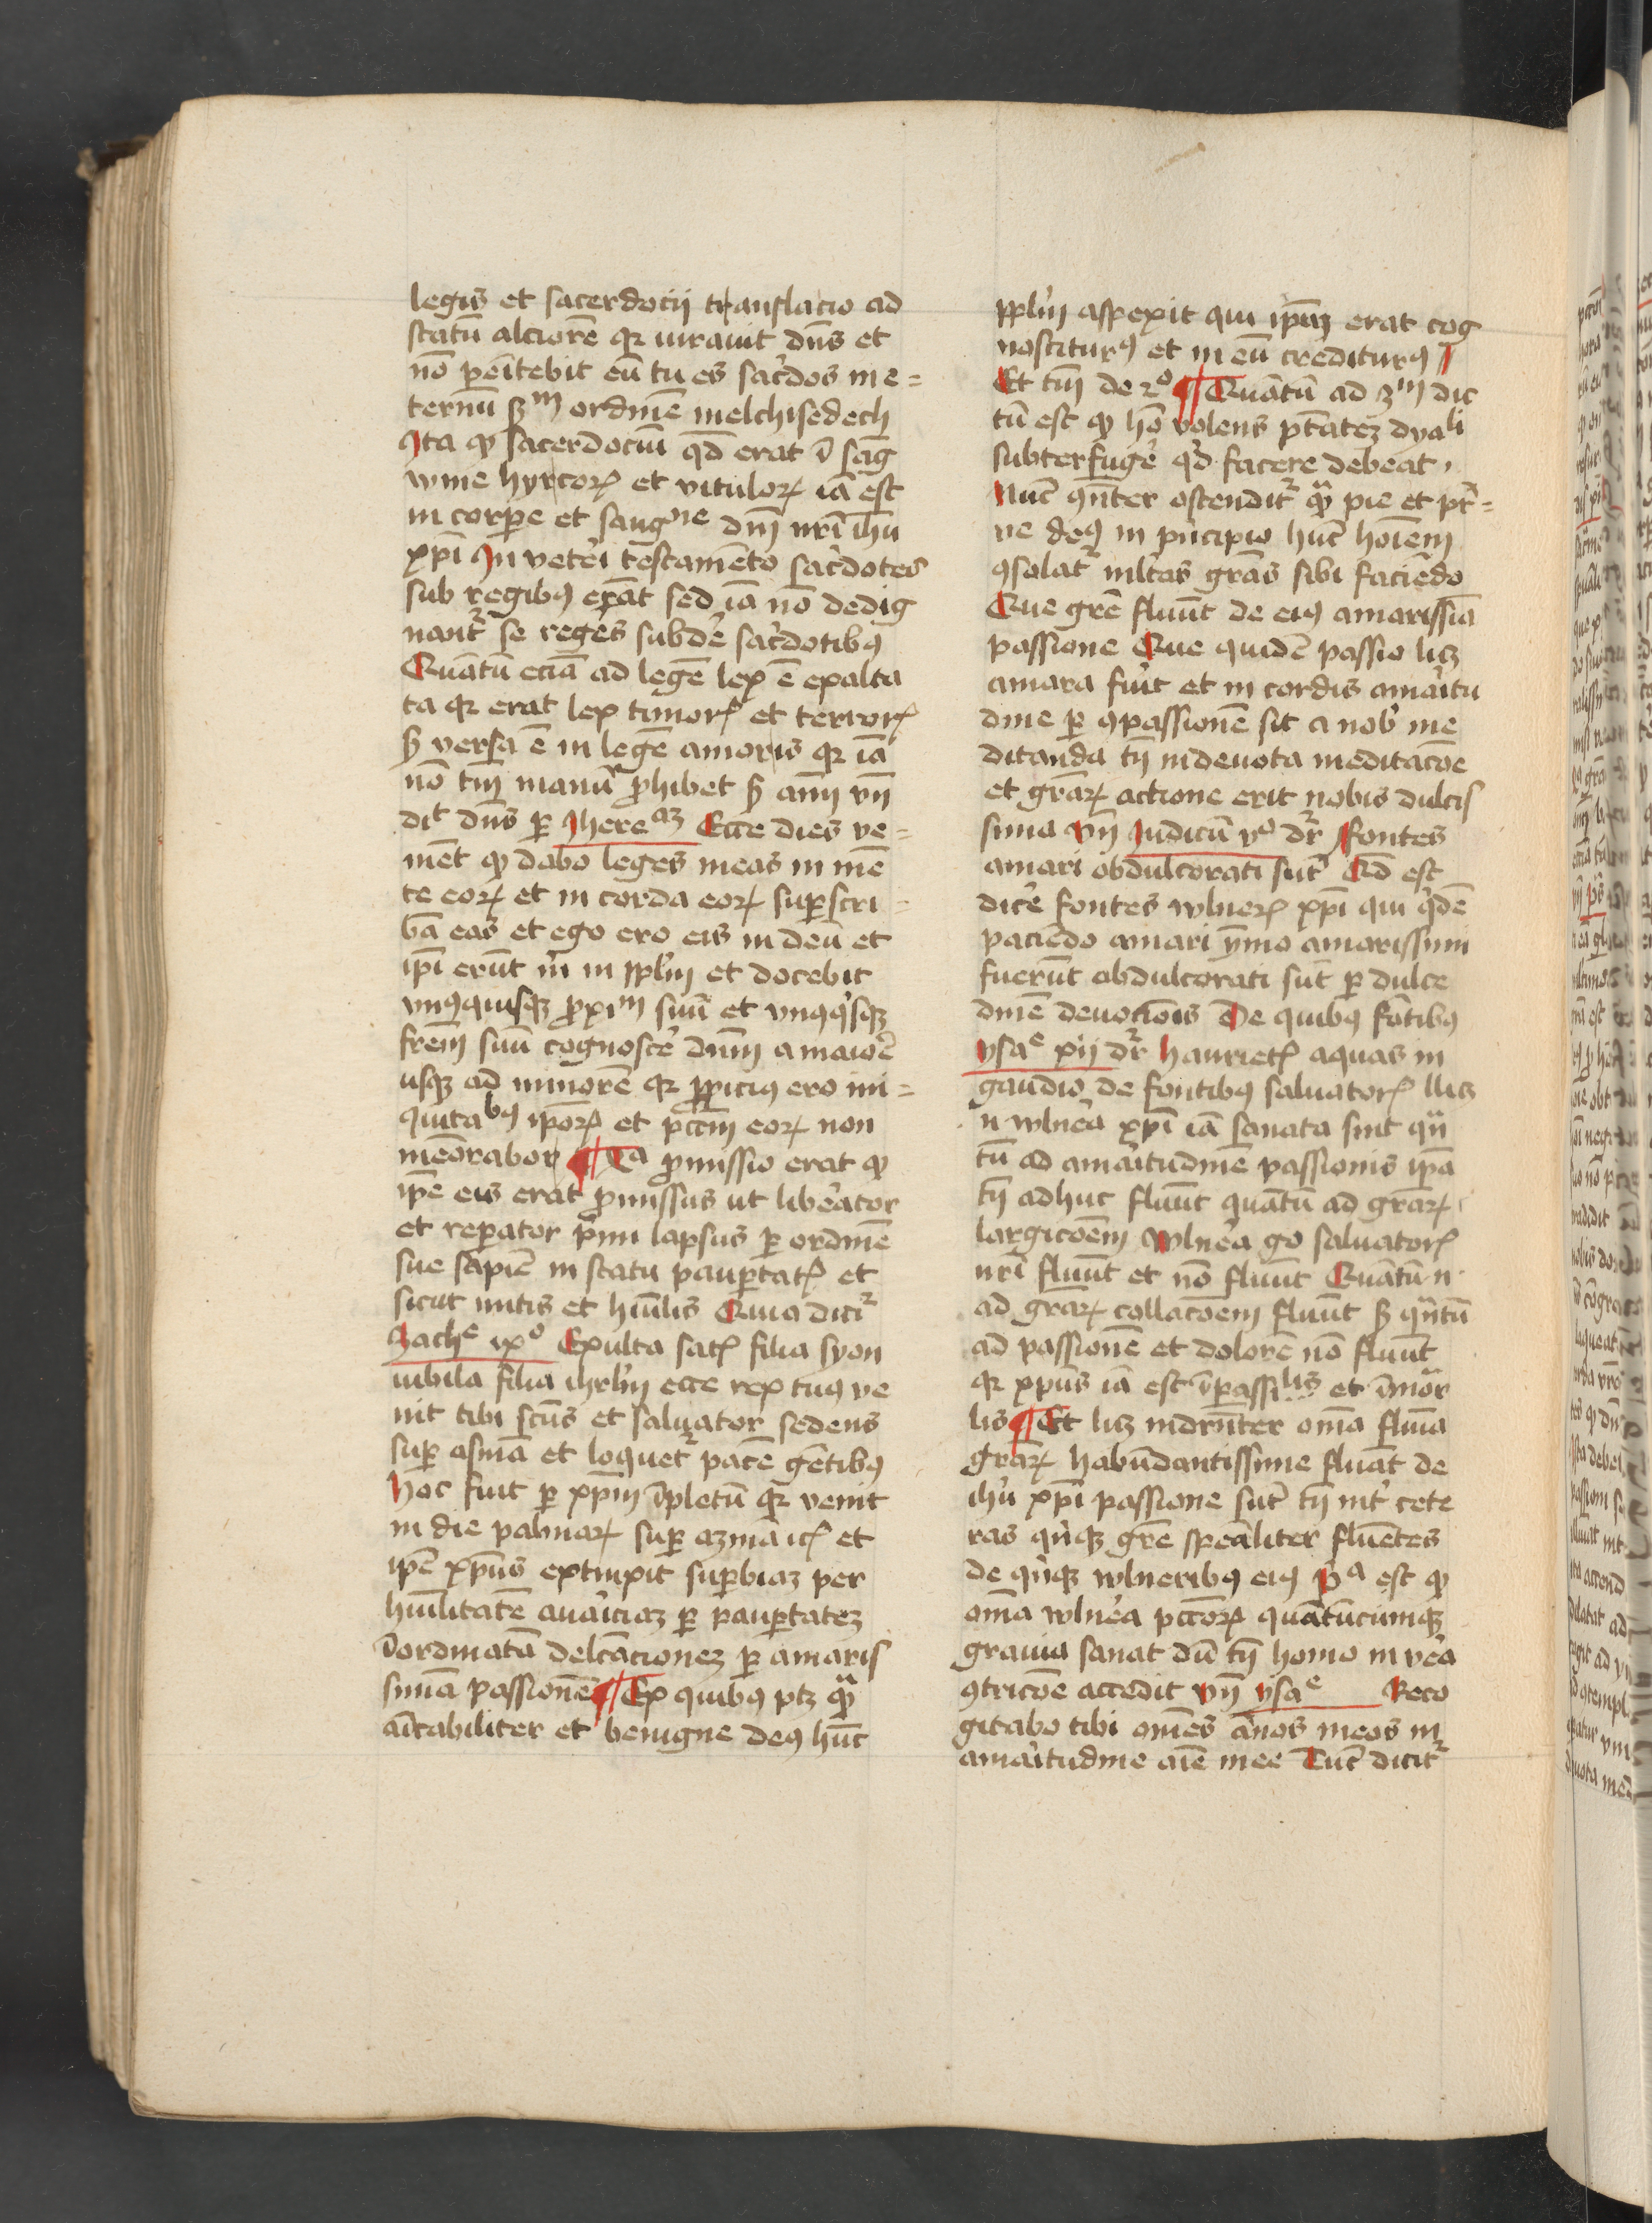 legis et sacerdocij translacio ad
statū alciorē qꝛ iurauit dn̄s et
nō penitebit eū tu es sac̓dos in e=
ternū ẜm ordinē melchisedech
Ita qͥ sacerdociū qd̄ erat ī saḡ
wine hyrcoꝝ et vituloꝝ iā est
in corꝑe et sangͥne dn̄i nr̄i ih̄u
xp̄i In vetei̓ testamēto sac̓dotes
sub regibꝰ erāt sed iā nō dedig
nantᷣ se reges subde̓ sac̓dotibꝰ
Quātū eciā ad legē lex ē exalta
ta qꝛ erat lex timorꝭ et terrorꝭ
ẜ versa ē in legē amoris qꝛ iā
nō tm̄ manū ꝓhibet ẜ aīm vn̄
dit dn̄s ꝑ Ihereᵃᵐ Ecce dies ve=
niēt qͥ dabo leges meas in mē
te eoꝝ et in corda eoꝝ suꝑscri=
bā eas et ego ero eis in deū et
ip̄i erūt m̓ in ppl̓m et docebit
vnꝰquisqꝫ ꝓxiᵐ suū et vnꝰqͥsqꝫ
fr̄em suū cognosce̓ dn̄m a maiore̓
usqꝫ ad minorē qꝛ ꝓpiciꝰ ero ini=
quitaᵇꝰ ip̄oꝝ et pcc̄m eoꝝ non
memōrabor ¶ Tᵃ ꝓmissio erat qͥ
ip̄e eis erat ꝓmissus ut libe̓ator
et reꝑator pͥmi lapsus ꝑ ordinē
sue sapiē in statu pauꝑtatꝭ et
sicut mitis et hūilis Quia dicitᷣ
Zachᵉ ixᵒ Exulta satꝭ filia syon
iubila filia ihrl̓m ecce rex tuꝰ ve
nit tibi sc̄us et saluator sedens
suꝑ asinā et loquetᷣ pacē gētibꝰ
Hoc fuit ꝑ xp̄m īpletū qꝛ venit
in die palmaꝝ suꝑ azinā icꝭ et
ip̄e xp̄us extinxit suꝑbiaꝫ per
hūilitatē auai̓ciaꝫ ꝑ pauꝑtateꝫ
īordinatā delcāctioneꝫ ꝑ amaris
simā passionē ¶ Ex quibꝰ ptꝫ qᷓ
aīcabiliter et benigne deꝰ hūc
ppl̓m aspexit qui ip̄aꝫ erat cog
nosciturꝰ et in eū crediturꝰ
Et tm̄ de 2ᵒ ¶ Quātū ad 3ᵐ dic
tū est qͥ hō volens ptātēꝫ dyaˡⁱ
subterfuge̓ qͥd facere debeat
Nūc ꝯn̄ter ostenditᷣ qᷓ pie et pt̓=
ne deꝰ in pͥncipio hūc hoīem
ꝯsolatᷣ ml̓tas grā̄s sibi faciēdo
Que grē̄ fluūt de eiꝰ amarissīa
passione Que quidē passio licꝫ
amara fui̓t et in cordis amai̓tu
dine ꝑ ꝯpassionē sit a nob̓ me
ditanda tn̄ in deuota meditacōe
et grāꝝ actione erit nobis dulcis
sima vn̄ Iudicū vᵒ dr̄ Fontes
amari obdulcorati sūt Qd̄ est
dice̓ fontes wlneꝝ xp̄i qui qͥdē
paciēdo amari ymo amarissimi
fuerūt obdulcorati sūt ꝑ dulce
dinē deuocōis De quibꝰ fōtibꝰ
ysaᵉ xij dr̄ haurietꝭ aquas in
gaudio de fontibꝰ saluatorꝭ llicꝫ
n̄ wlnea̓ xp̄i iā sanata sint qᷓ
tū ad amai̓tudinē passionis ip̄a
tn̄ adhuc fluūt quātū ad grāꝝ
largicōem wlnea̓ go saluatorꝭ
nr̄i fluūt et nō fluūt Quātū n̄
ad grāꝝ collacōem fluūt ẜ qᷓntū
ad passionē et dolorē nō fluūt
qꝛ xp̄us iā est īpassiˡⁱˢ et īmor
lis ¶ Et licꝫ indrn̄ter om̄a flumīa
grāꝝ habūdantissime fluāt de
ih̓u xp̄i passione sūt tn̄ int̓ cete
ras qͥnqꝫ grē̄ spea̓liter fluētes
de qͥnqꝫ wlneribꝰ eiꝰ pᵃ est qͥ
om̄a wlnea̓ pcc̄oꝝ quātūcumqꝫ
grauia sanat dū tn̄ homo in vea̓
ꝯtricōe accedit vn̄ ysaᵉ Reco
gitabo tibi om̄es ānos meos in
amai̓tudine aīe mee Tūc dicitᷣ